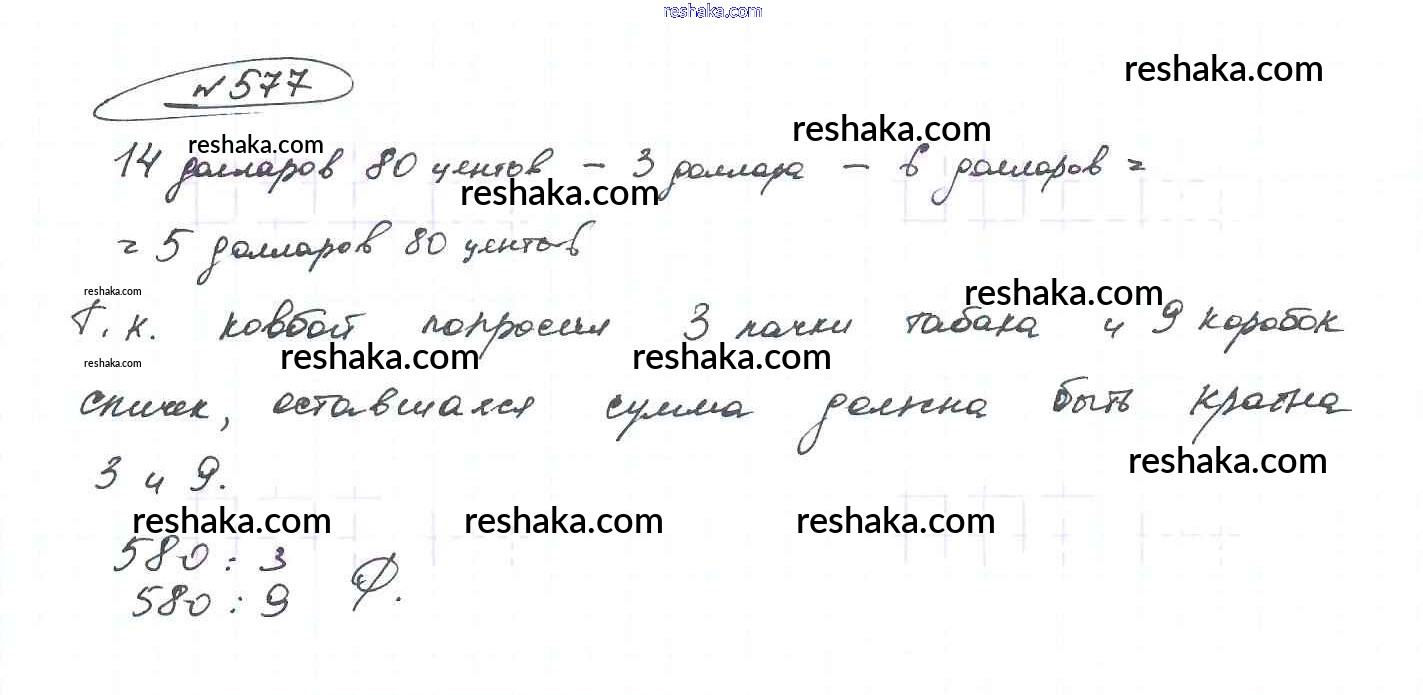 reshaka.com
№ 577
reshaka.com
reshaka.com
reshaka.com
14 долларов 80 центов - 3 доллара - 6 долларов =
reshaka.com
= 5 долларов 80 центов
reshaka.com
reshaka.com
Т.к. ковбой попросил 3 пачки табака и 9 коробок
reshaka.com
reshaka.com
reshaka.com
спичек, оставшаяся сумма должна быть кратна
reshaka.com
3 и 9.
reshaka.com
reshaka.com
reshaka.com
580 : 3
580 : 9